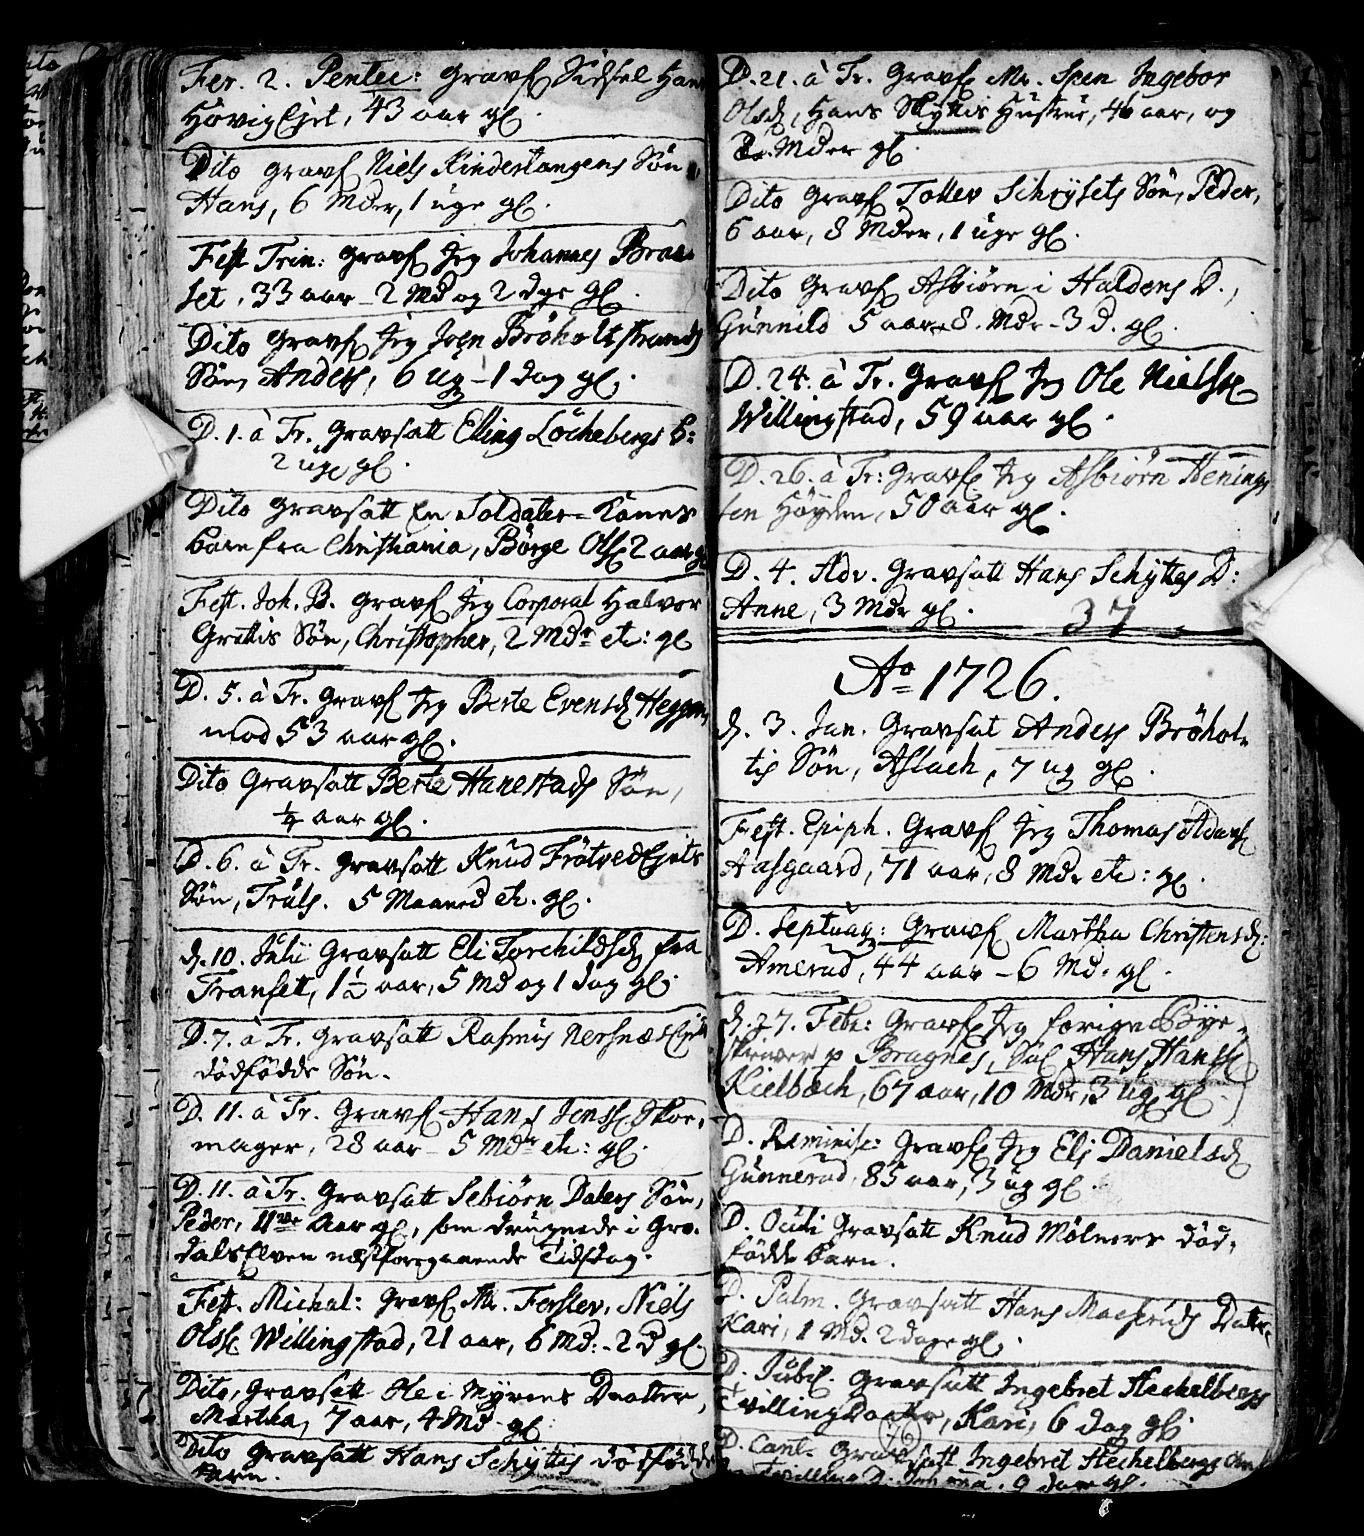 Fer. 2. Pentec: Gravs. Sidsel Hans
HövigEjet, 43 aar gl.
Dito gravs. Niels Kinderstangens Sön
Hans, 6 Mdr, 1 uge gl.
Fest Trin: Gravs. Jeg Johannes Braa-
set, 33 aar - 2 Md og 2 dge gl.
Dito Gravs. Jeg Joen Bröholtstrands
Sön, Anders, 6 ug - 1 dag gl.
D. 1. à Tr. Gravsatt Elling Löchebergs B:
2 uge gl.
Dito Gravsatt En Soldater-Kones
barn fra Christiania, Börge Ols. 2 aar gl
Fest. Joh. B. Gravs. Jeg Corporal Halvor
Grettis Sön, Christopher, 2 Mdr etc: gl
D. 5. à Tr. Gravs. Jeg Berte Evensd. Heggen,
mod 53 aar gl.
Dito Gravsatt Berte Hanestads Sön,
1/4 aar gl.
D. 6. à Tr. Gravsatt Knud FrötvedEjets
Sön, Truls. 5 Maaned etc. gl.
d. 10. Julii Gravsatt Eli Torchildsd. fra
Franset, 1 1/2 aar, 5 Md og 1 dag gl.
D. 7. à Tr. Gravsatt Rasmus NersnæsEjets
dödfödde Sön.
D. 11. à Tr. Gravs. Hans Jenss. Skoe-
mager, 28 aar - 5 Mdr etc: gl.
D. 11. à Tr. Gravsatt Sebiörn Dalers Sön,
Peder, 11 aar gl, som druknede i Gro-
dalsElven næstforegaaende Tidsdag.
Fest. Michal: Gravs. Mr. Forslev, Niels
Olss. Willingstad, 21 aar, 6 Md. - 2 d gl.
Dito, Gravsatt Ole i Myrens Daatter,
Martha, 7 aar, 4 Md gl.
Dito Gravsatt Hans Schyttis dödfödde
barn.
D. 21. à Tr. Gravs. Mr. Spen Ingebor
Olsd, Hans Skyttis Hustrue, 46 aar, og
Mder gl.
Dito Gravs. Tollev Schöysets Sön, Peder,
6 aar, 8 Mder, 1 uge gl.
Dito Gravs. Asbiörn i Haldens D.,
Gunnild 5 aar - 8. Mdr - 3 d. gl.
D. 24. à Tr. Gravs. Jeg Ole Nielss.
Willingstad, 59 aar gl.
D. 26. à Tr: Gravs. Jeg Asbiörn Henings-
sen Höyden, 50 aar gl.
D. 4. Adv. Gravsatt Hans Schyttes D:
Anne, 3 Mdr gl.
37
Ao 1726.
d. 3. Jan. Gravsat Anders Bröhol-
tis Sön, Aslach, 7 ug gl.
Fest. Epiph. Gravs. Jeg Thomas Adams.
Aasgaard, 71 aar, 8 Md. etc: gl.
D. Septuag: Gravs. Martha Christensd:
Amerud, 44 aar - 6 Md. gl.
d. 27. Febr: Gravs. Jeg forige Bye-
skriver p Bragnes, Sal Hans Hanss.
Kielbach, 67 aar, 10 Mdr, 3 ug gl.
D. Reminisc: Gravs. Jeg Eli Danielsd.
Gunnerud, 85 aar, 3 ug gl.
D. Oculi Gravsatt Knud Mölners död-
födde barn.
D. Palm. Gravsatt Hans Maeseruds Datter
Kari, 1 Md. 2 dage gl.
D. Jubil. Gravsatt Ingebret Stechelbergs
Tvilling Daatter, Kari, 6 dag gl.
76
D. Cant. Gravsatt Ingebret Stechelbergs
Tvilling D. 9 dage gl.